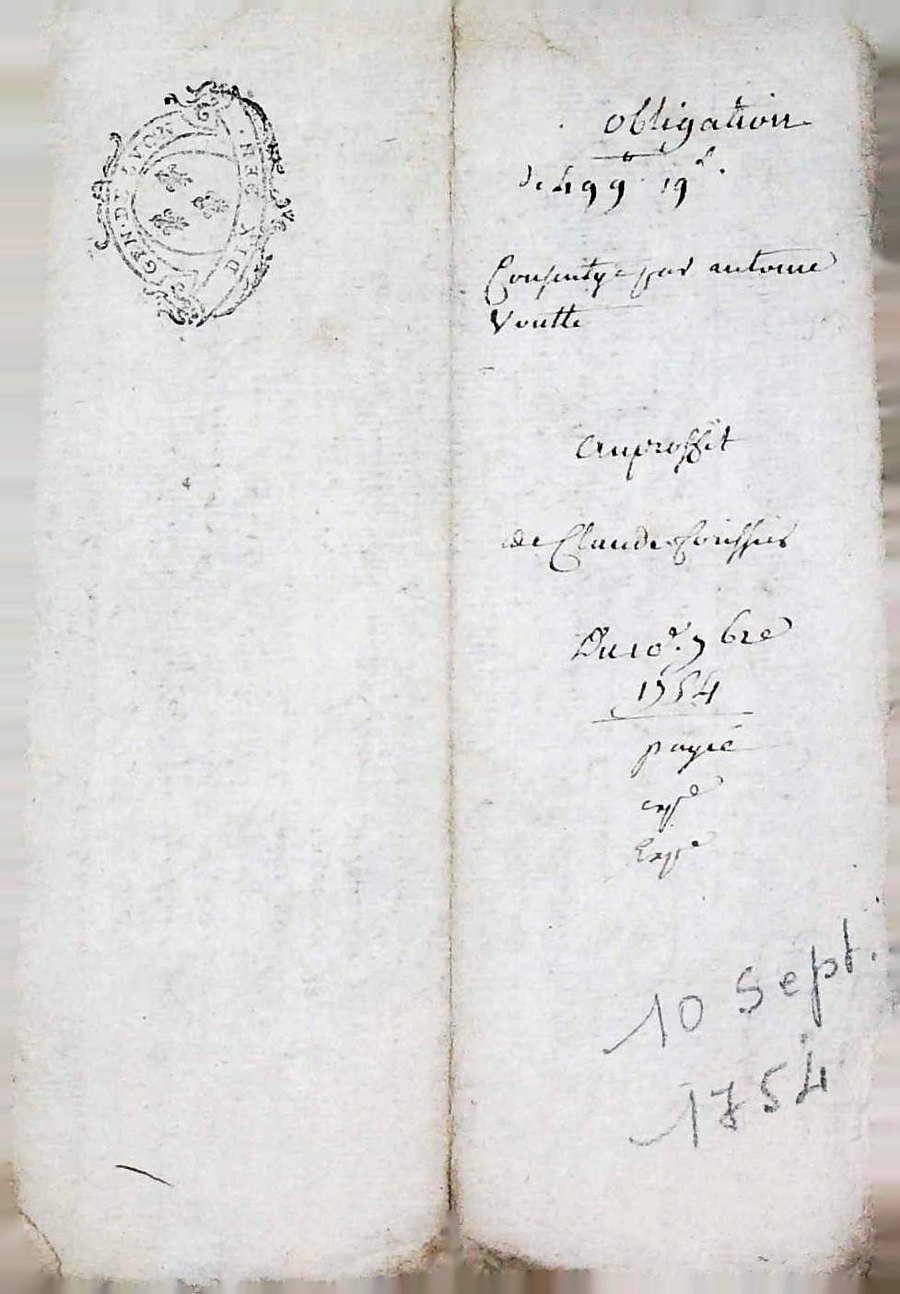 GEN · DE LYON
obligation
de 499 19ˢ
Consentye par antoine
Voutte
au proffit
de Claude
Du 10ᵉ 7bre
1754
payée
expᵉ
10 Sept.
1754